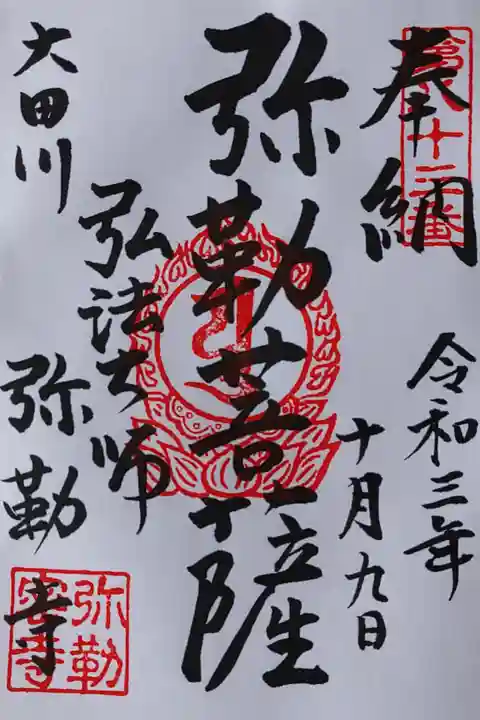 奉納
令和三年
十月九日
弥勒菩薩
弘法大師
大田川
弥勒寺
弥勒
密寺